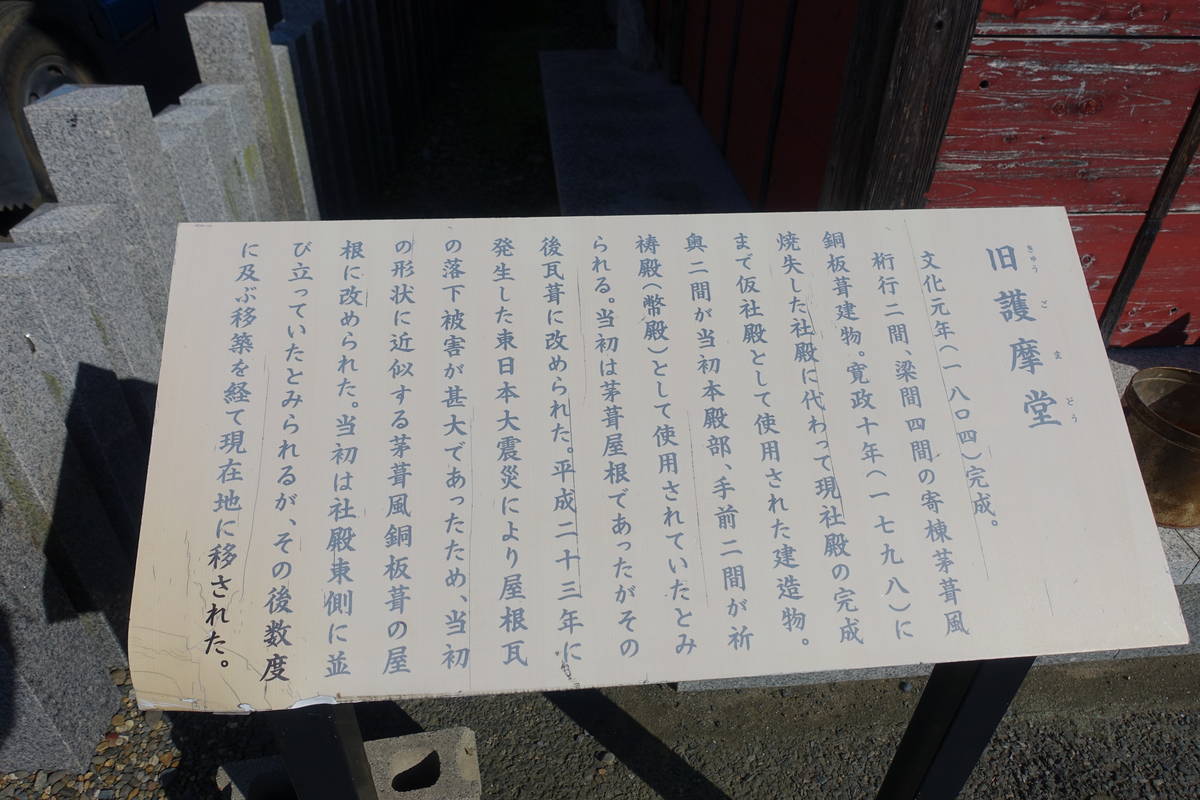 旧護摩堂
きゅうごまどう
文化元年(一八〇四)完成。
桁行二間、梁間四間の寄棟茅葺風
銅板葺建物。寛政十年(一七九八)に
焼失した社殿に代わって現社殿の完成
まで仮社殿として使用された建造物。
奥二間が当初本殿部、手前二間が祈
祷殿(幣殿)として使用されていたとみ
られる。当初は茅葺屋根であったがその
後瓦葺に改められた。平成二十三年に
発生した東日本大震災により屋根瓦
の落下被害が甚大であったため、当初
の形状に近似する茅葺風銅板葺の屋
根に改められた。当初は社殿東側に並
び立っていたとみられるが、その後数度
に及ぶ移築を経て現在地に移された。